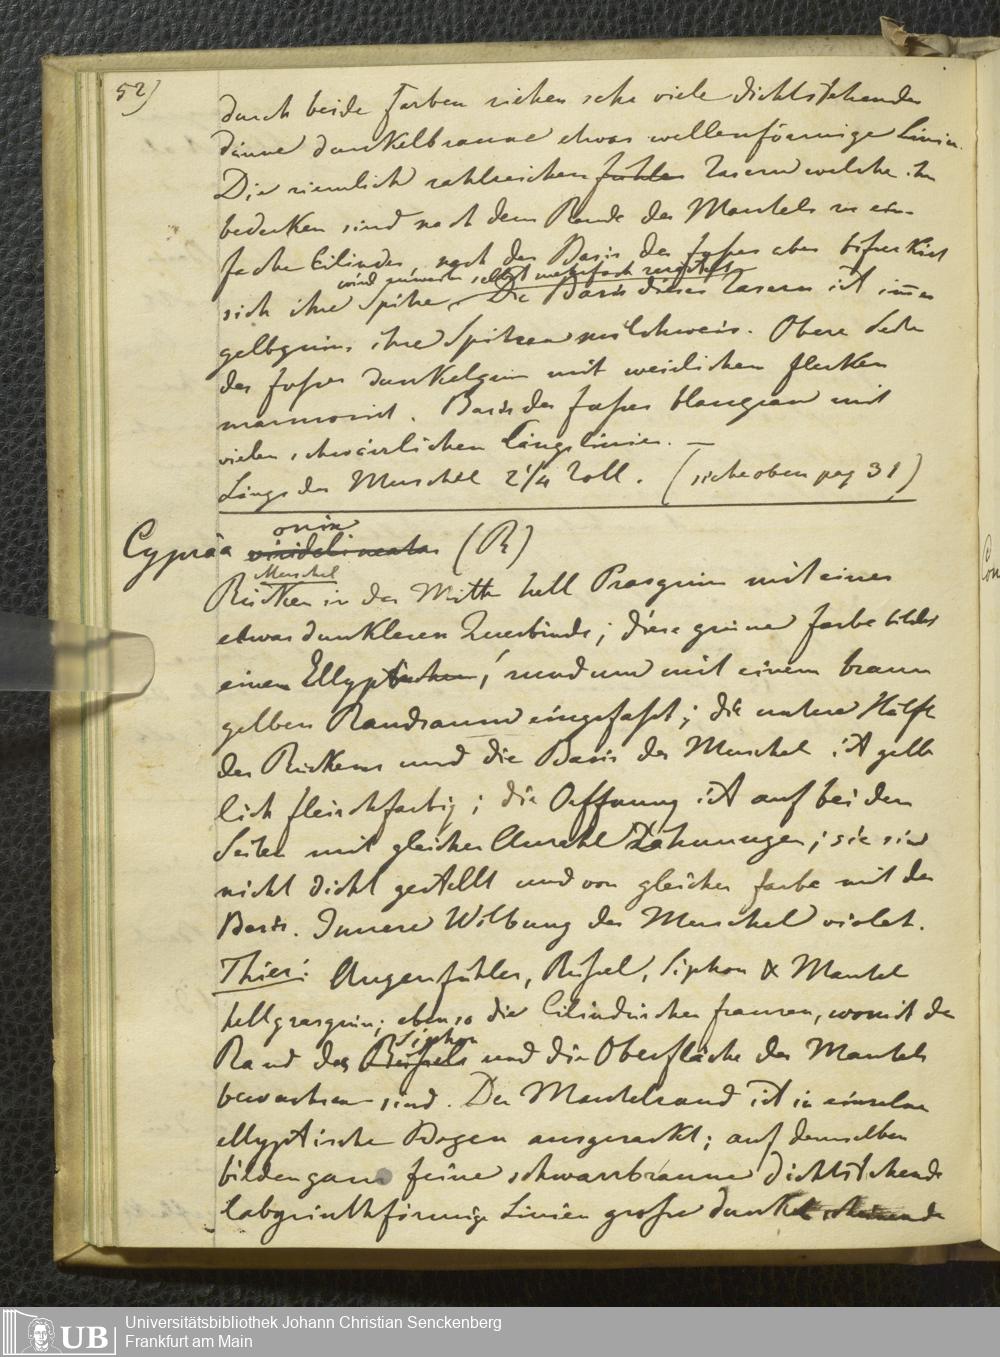 52)
durch beide Farben ziehen sehr viele dichtstehende
dünne dunkelbraune etwas wellenförmige Linien.
Die ziemlich zahlreichen fühler Zasern welche ihn
bedecken sind nach dem Rande des Mantels zu ein-
fache Cilinder, nach der Basis des Fußes aber bifurkirt
sich ihre Spitze, Die Basis dieser Zasern ist immer
gelbgrün, ihre Spitzen milchweis. Obere Seite
des Fußes dunkelgrün mit weislichen Flecken
marmorirt. Basis des Fußes blaugrau mit
vielen schwärzlichen Längslinien. —
Länge der Muschel 2 1/4 Zoll. (siehe oben pag 31)
Cypräa viridelineata (R)
Muschel
Rücken in der Mitte hell Prasgrün mit einer
etwas dunkleren Querbinde; diese grüne Farbe bildet
einen Ellyp rund um mit einem braun
gelben Randsaum eingefaßt; die untere Hälfte
des Rückens und die Basis der Muschel ist gelb
lich fleischfarbig; die Oeffnung ist auf beiden
Seiten mit gleicher Anzahl Zähnungen; sie sind
nicht dicht gestellt und von gleicher Farbe mit der
Basis. Innere Wölbung der Muschel violet.
Thier: Augenfühler, Rüßel, Siphon & Mantel
hellgrasgrün; ebenso die Cilindrischen franzen, womit der
Siphon
Rand des Rüßels und die Oberfläche des Mantels
bewachsen sind. Der Mantelrand ist in einzelne
ellyptische Bogen ausgezackt; auf demselben
bilden ganz feine schwarzbraune dichtstehende
labyrinthförmige Linien große dunkel
UB
Universitätsbibliothek Johann Christian Senckenberg
Frankfurt am Main